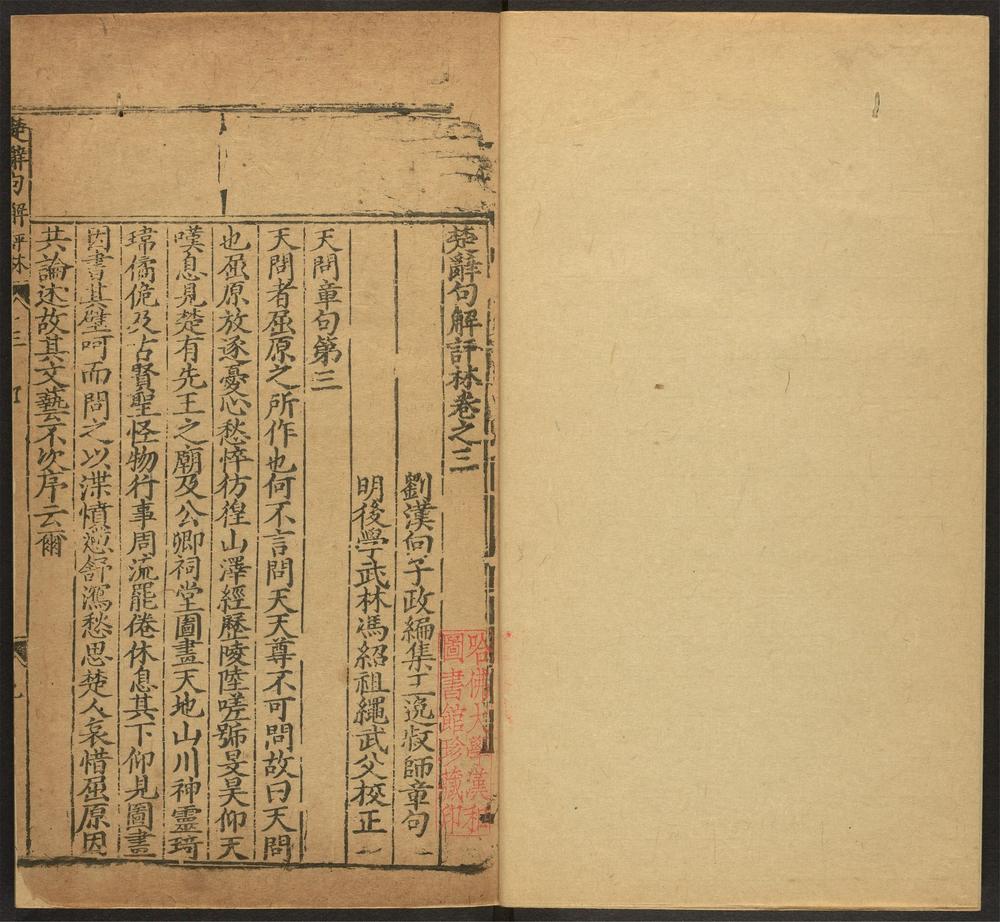 楚辭句解評林卷之三
劉漢向子政編集王逸叔師章句
明後學武林馮紹祖繩武父校正
天問章句第三
天問者屈原之所作也何不言問天天尊不可問故曰天問
也屈原放逐憂心愁悴彷徨山澤經歷陵陸嗟號旻昊仰天
嘆息見楚有先王之廟及公卿祠堂圖畫天地山川神靈琦
瑋僪佹及古賢聖怪物行事周流罷倦休息其下仰見圖畫
因書其壁呵而問之以渫憤懣舒瀉愁思楚人哀惜屈原因
共論述故其文藝不次序云爾
楚辭句解評林
三
哈佛大學漢和
圖書館珍藏印